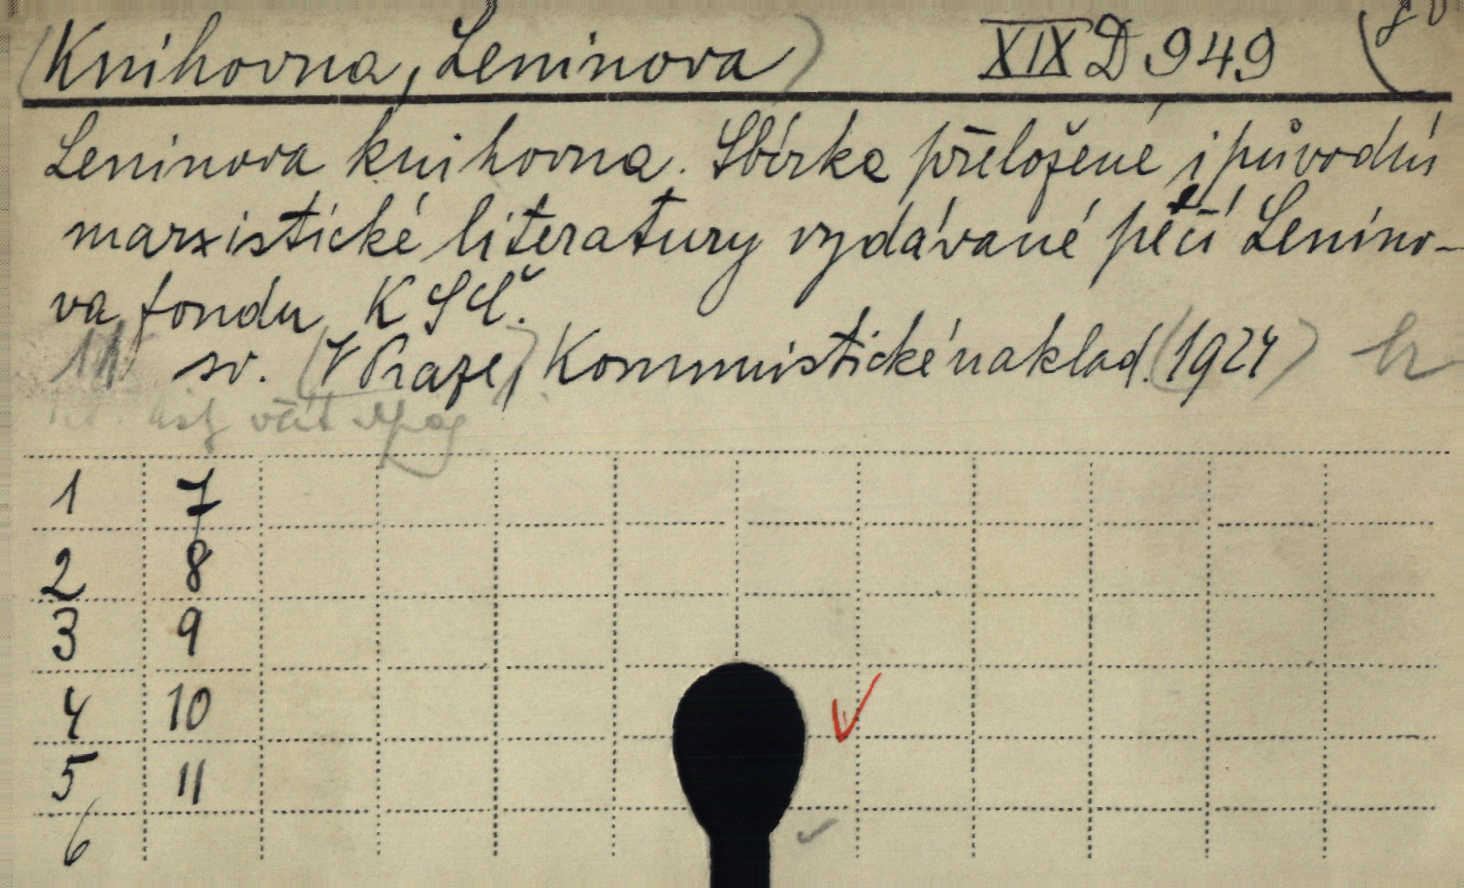 (Knihovna, Leninova) XIX D 949
Leninova knihovna. Sbírka přeložené i původní
marxistické literatury vydávané péčí Lenino-
va fondu KSČ.
11 sv. (V Praze), Kommunistické naklad. (1924)
1 7
2 8
3 9
4 10
5 11
6